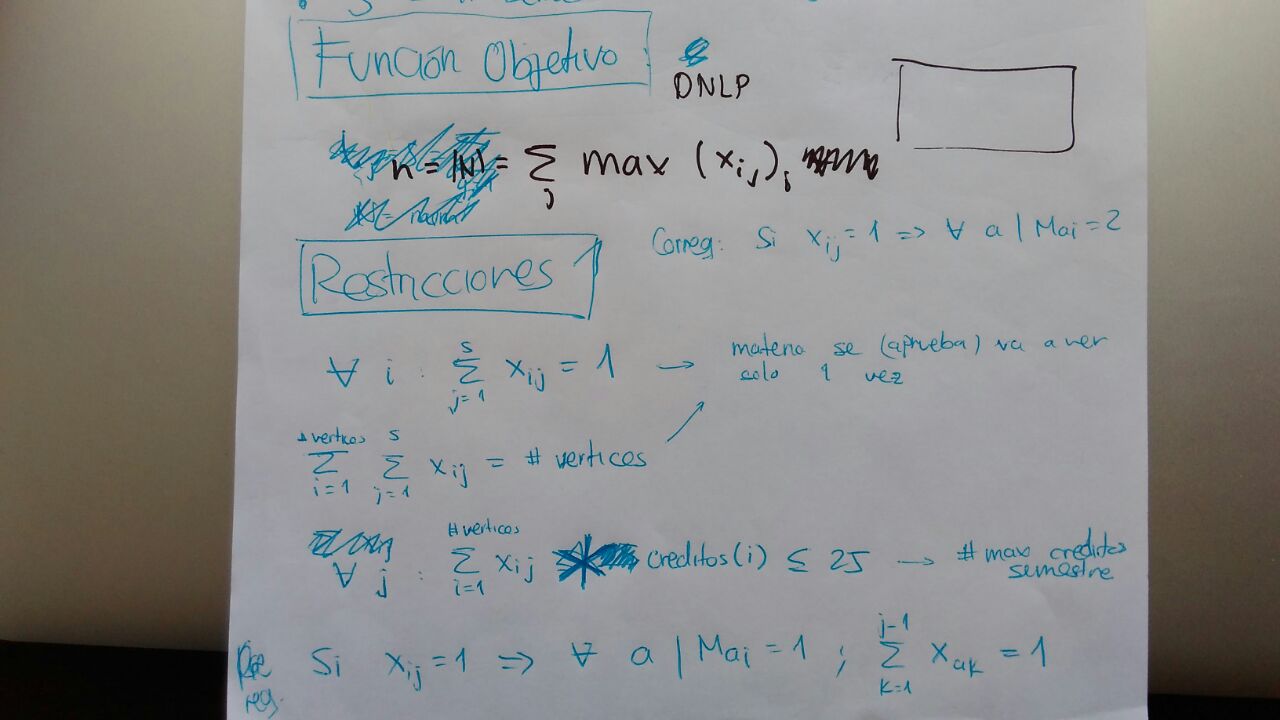 Función Objetivo
DNLP
n = |N| = ∑ max (x_ij)_i
j
Correq: Si x_ij = 1 => ∀ a | M_ai = 2
Restricciones
∀ i : ∑_{j=1}^{s} x_ij = 1 → materia se (aprueba) va a ver
solo 1 vez
∑_{i=1}^{# vertices} ∑_{j=1}^{s} x_ij = # vertices
∀ j : ∑_{i=1}^{# vertices} x_ij * creditos(i) ≤ 25 → # max creditos
semestre
Pre Si x_ij = 1 => ∀ a | M_ai = 1 ; ∑_{k=1}^{j-1} x_ak = 1
req.